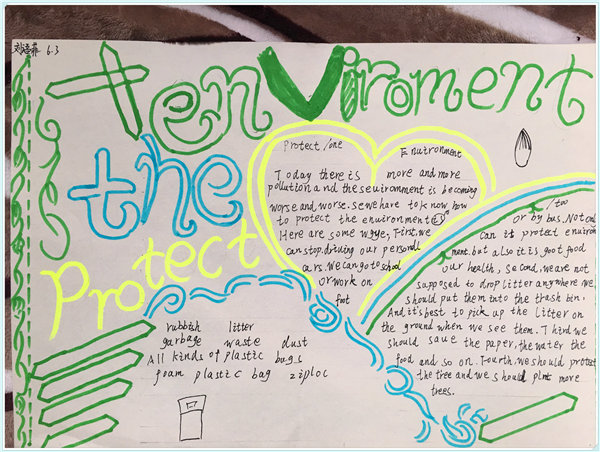 6.3
enviroment
the
Protect
Protect /one Environment
Today there is more and more
pollution and the seuiromment is becoming
worse and worse. Se we have to know how
to protect the environment
Here are some waye, First, we
can stop. driving our personal
cars. We can go to school
or work on
foot
/too
or by bus. Not onl
can it protect environ
ment. but also it is goot food
our health, second, we are not
supposed to drop litter anywhere we
should put them into the trash bin.
And it's best to pick up the litter on
the ground when we see them. Third we
should saue the paper, the water the
food and so on. Fourth, we should protect
the tree and we should plnt more
trees.
rubbish litter
garbage waste dust
All kinds of plastic bags
foam plastic bag ziploc